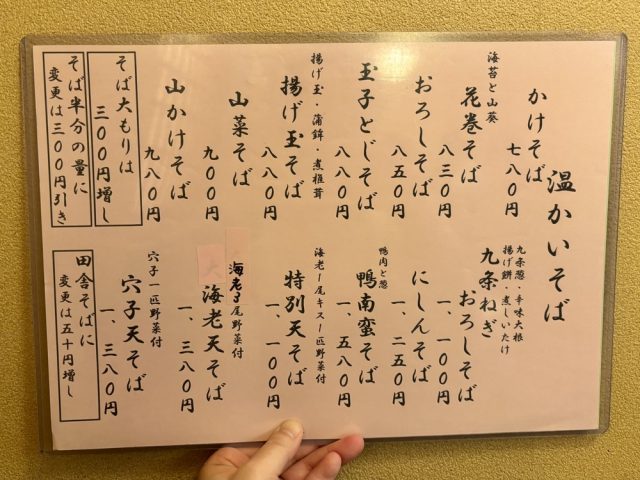 温かいそば
かけそば
七八〇円
海苔と山葵
花巻そば
八三〇円
おろしそば
八五〇円
玉子とじそば
八八〇円
揚げ玉・蒲鉾・煮椎茸
揚げ玉そば
八八〇円
山菜そば
九〇〇円
山かけそば
九八〇円
そば大もりは
三〇〇円増し
そば半分の量に
変更は三〇〇円引き
九条葱・辛味大根
揚げ餅・煮しいたけ
九条ねぎ
おろしそば
一、一〇〇円
にしんそば
一、二五〇円
鴨肉と葱
鴨南蛮そば
一、五八〇円
海老一尾キス一匹野菜付
特別天そば
一、一〇〇円
海老3尾野菜付
大海老天そば
一、三八〇円
穴子一匹野菜付
穴子天そば
一、三八〇円
田舎そばに
変更は五十円増し